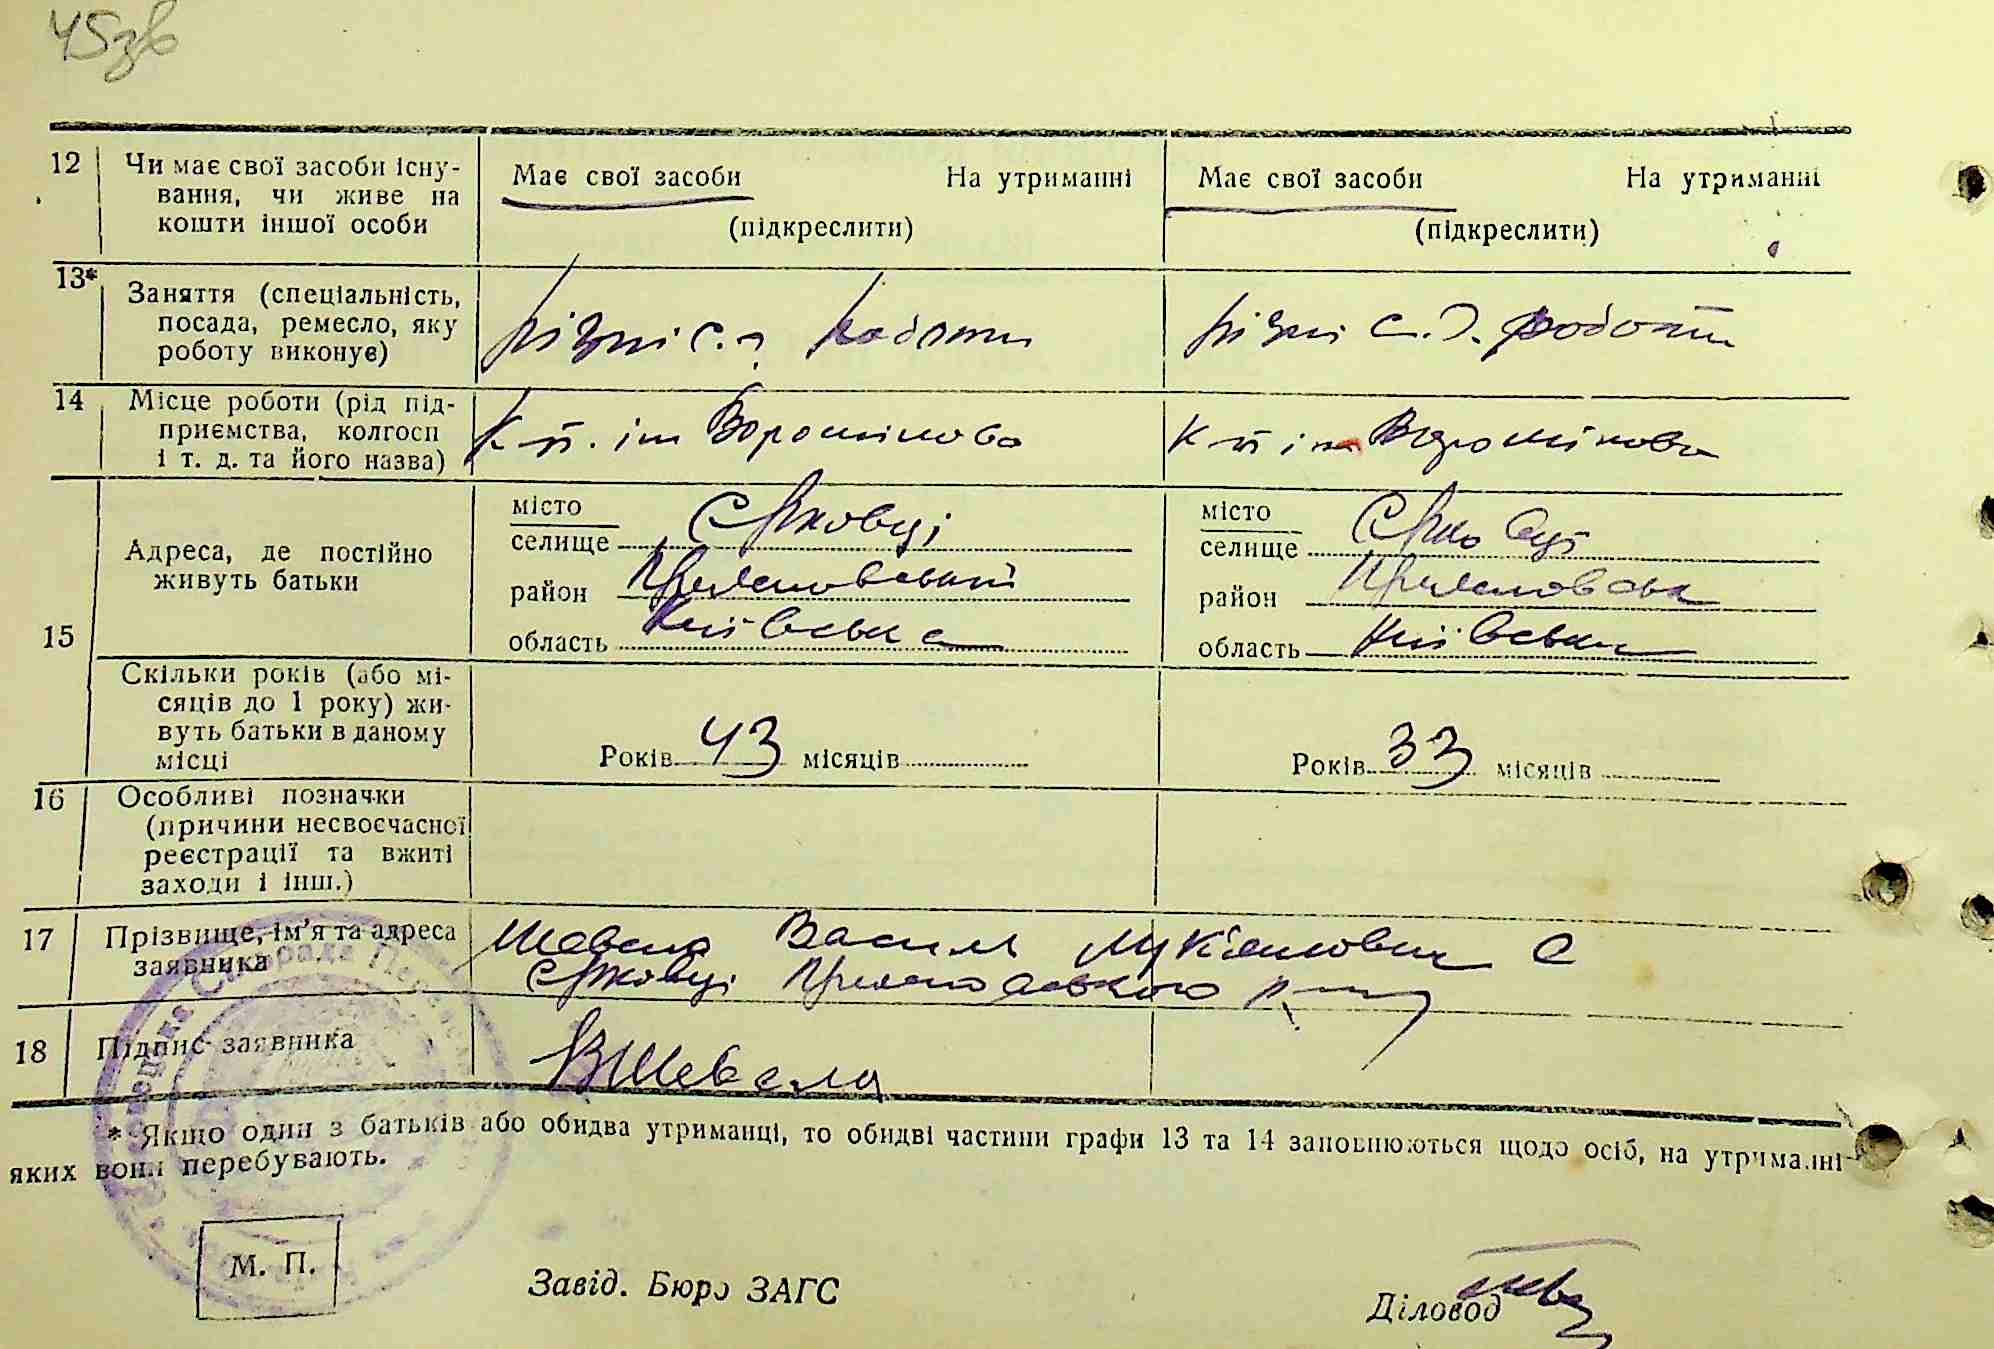 45зв
12 Чи має свої засоби існу- Має свої засоби На утриманні Має свої засоби На утриманні
вання, чи живе на
кошти іншої особи (підкреслити) (підкреслити)
13* Заняття (спеціальність, різні с. г. роботи різні с. г. роботи
посада, ремесло, яку
роботу виконує)
14 Місце роботи (рід під- К-п. ім Ворошилова К-п ім Ворошилова
приємства, колгосп
і т. д. та його назва)
15 Адреса, де постійно
живуть батьки
місто
селище Єрковці
район
область Київська
місто
селище Єрковці
район
область Київська
Скільки років (або мі-
сяців до 1 року) жи-
вуть батьки в даному
місці
Років 43 місяців Років 33 місяців
16 Особливі позначки
(причини несвоєчасної
реєстрації та вжиті
заходи і інш.)
17 Прізвище, ім'я та адреса Шевела Василь Лукянович С
заявника Єрковці
18 Підпис заявника ВШевела
* Якщо один з батьків або обидва утриманці, то обидві частини графи 13 та 14 заповнюються щодо осіб, на утриманні
яких вони перебувають.
М. П.
Завід. Бюро ЗАГС
Діловод